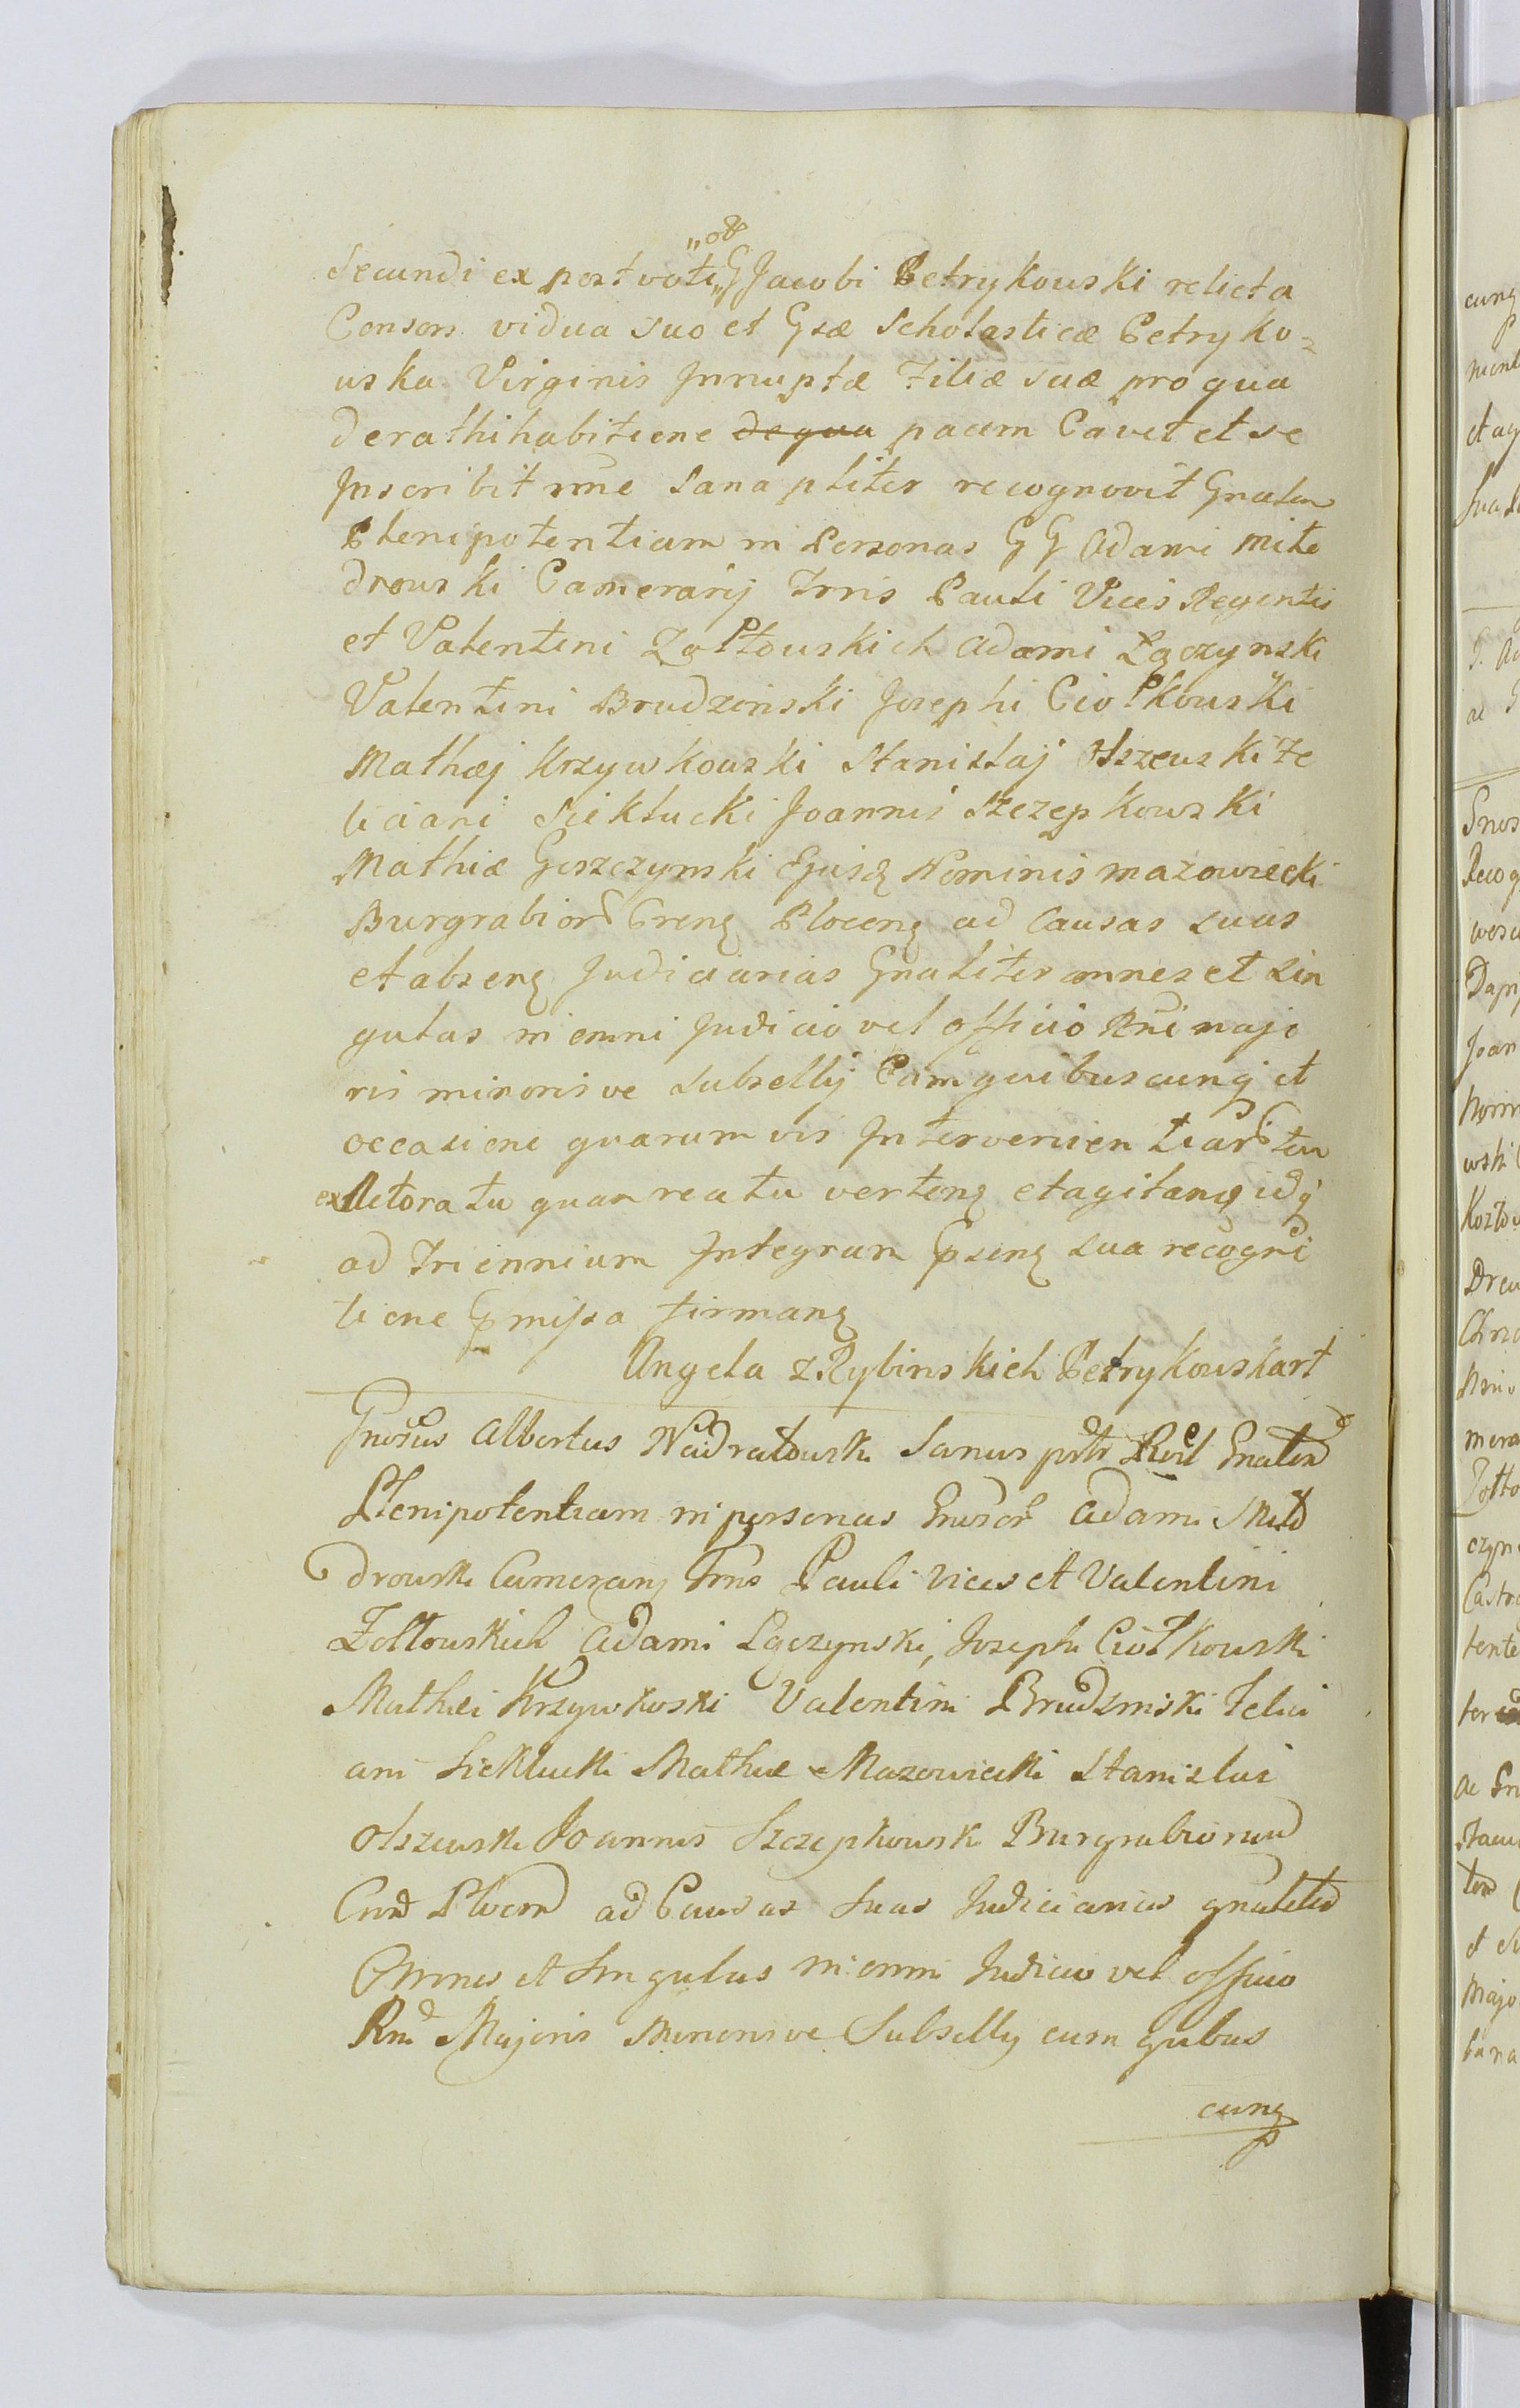 „ob
Secundi ex post voti„ G Jacobi Petrykowski relicta
Consors vidua suo et Gsæ Scholasticæ Petryko=
wska Virginis Innuptæ Filiæ suæ pro qua
de rathihabitione de qua pacem Cavet et se
Inscribit mne Sana pliter recognovit Gnalem
Plenipotentiam in Personas GG Adami Mito
drowski Camerarij Trris Pauli Vices Regentis
et Valentini Zołtowskich Adami Łączynski
Valentini Brudzinski Josephi Ciołkowski
Mathæj Krzywkowski Stanislaj Olszewski Fe
liciani Siekłucki Joannis Szczepkowski
Mathiæ Goszczynski Ejusq Nominis mazowiecki
Burgrabior Crenq Plocenq ad Causas suas
et absenq Judiciarias Gnaliter omnes et Sin
gulas in omni Judicio vel officio Rni majo
ris minorisve Subsellij Cum quibuscunq et
occasione quarumvis Intervenientiar tam
ex Actoratu quam reatu vertenq et agitanq idq
ad Triennium Integrum psenq sua recogni
tione pmissa firmanq
Angela z Rybinskich Petrykowska rt
Gnosus Albertus Nadratowski Sanus pltr Rcvt Gnalem
Plenipotentiam in personas Gnosor Adami Mito
drowski Camerarij Trris Pauli Vices et Valentini
Zołtowskich Adami Łączynski, Josephi Ciołkowski
Mathei Krzywkoski Valentini Brudzinski Felici
ani Siekłucki Mathiæ Mazowiecki Stanislai
Olszewski Joannis Szczepkowski Burgrabiorum
Cren Plocen ad Causas suas Judiciarias gnaliter
Omnes et Singulas in omni Judicio vel officio
Rni Majoris Minorisve Subsellij cum qubus
cunq